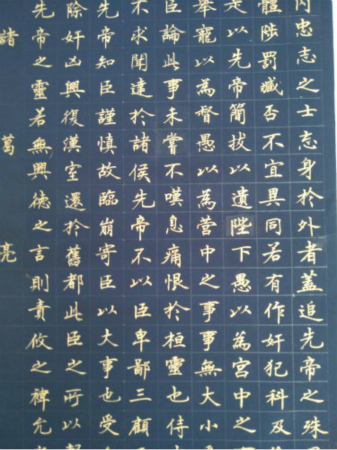 忠志之士忘身於外者蓋追先帝之殊
體陟罰臧否不宜異同若有作奸犯科及
以先帝簡拔以遺陛下愚以為宮中之
舉寵以為督愚以為營中之事事無大小
臣論此事未嘗不嘆息痛恨於桓靈也侍
不求聞達於諸侯先帝不以臣卑鄙三顧
先帝知臣謹慎故臨崩寄臣以大事也受
除奸凶興復漢室還於舊都此臣之所以
先帝之靈若無興德之言則責攸之禕允
諸葛亮